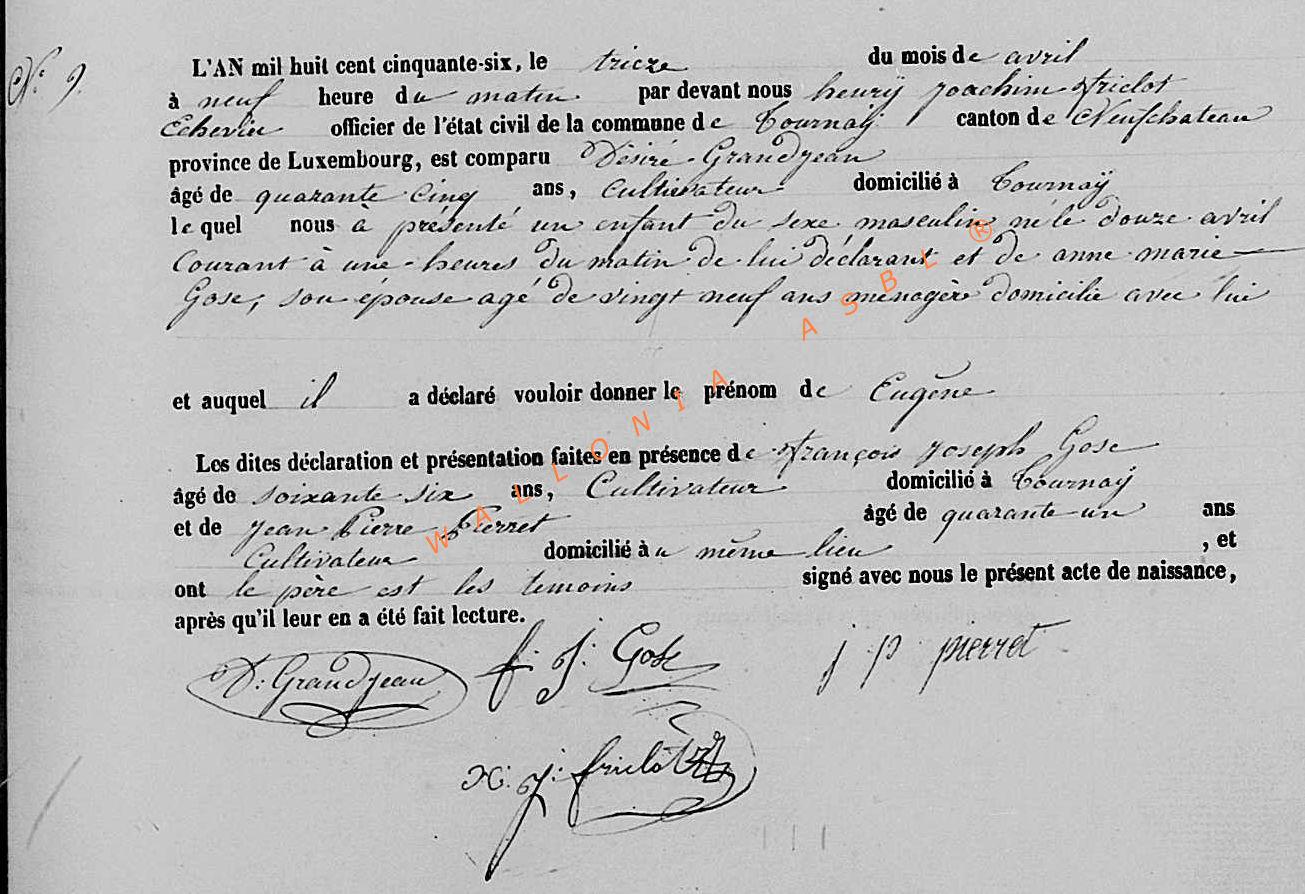 N° 9.
L'AN mil huit cent cinquante-six, le treize du mois de avril
à neuf heure du matin par devant nous henry joachim friclot
Echevin officier de l'état civil de la commune de Tournaÿ canton de Neufchateau
province de Luxembourg, est comparu Désiré Grandjean
âgé de quarante cinq ans, Cultivateur domicilié à Tournaÿ
le quel nous à présenté un enfant du sexe masculin né le douze avril
Courant à une heures du matin de lui déclarant et de anne marie
Gose, son épouse agé de vingt neuf ans ménagère domicilie avec lui
et auquel il a déclaré vouloir donner le prénom de Eugène
Les dites déclaration et présentation faites en présence de françois joseph Gose
âgé de soixante six ans, Cultivateur domicilié à Tournaÿ
et de jean Pierre Pierret âgé de quarante un ans
Cultivateur domicilié àu même lieu , et
ont le père est les temoins signé avec nous le présent acte de naissance,
après qu'il leur en a été fait lecture.
D: Grandjean f: J: Gose j p pierret
J: friclot
WALLONIA ASBL ®